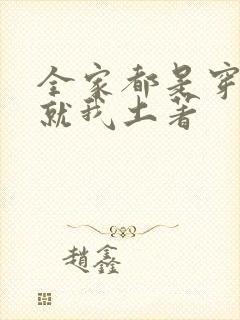 全家都是穿
就我土著
趙鑫